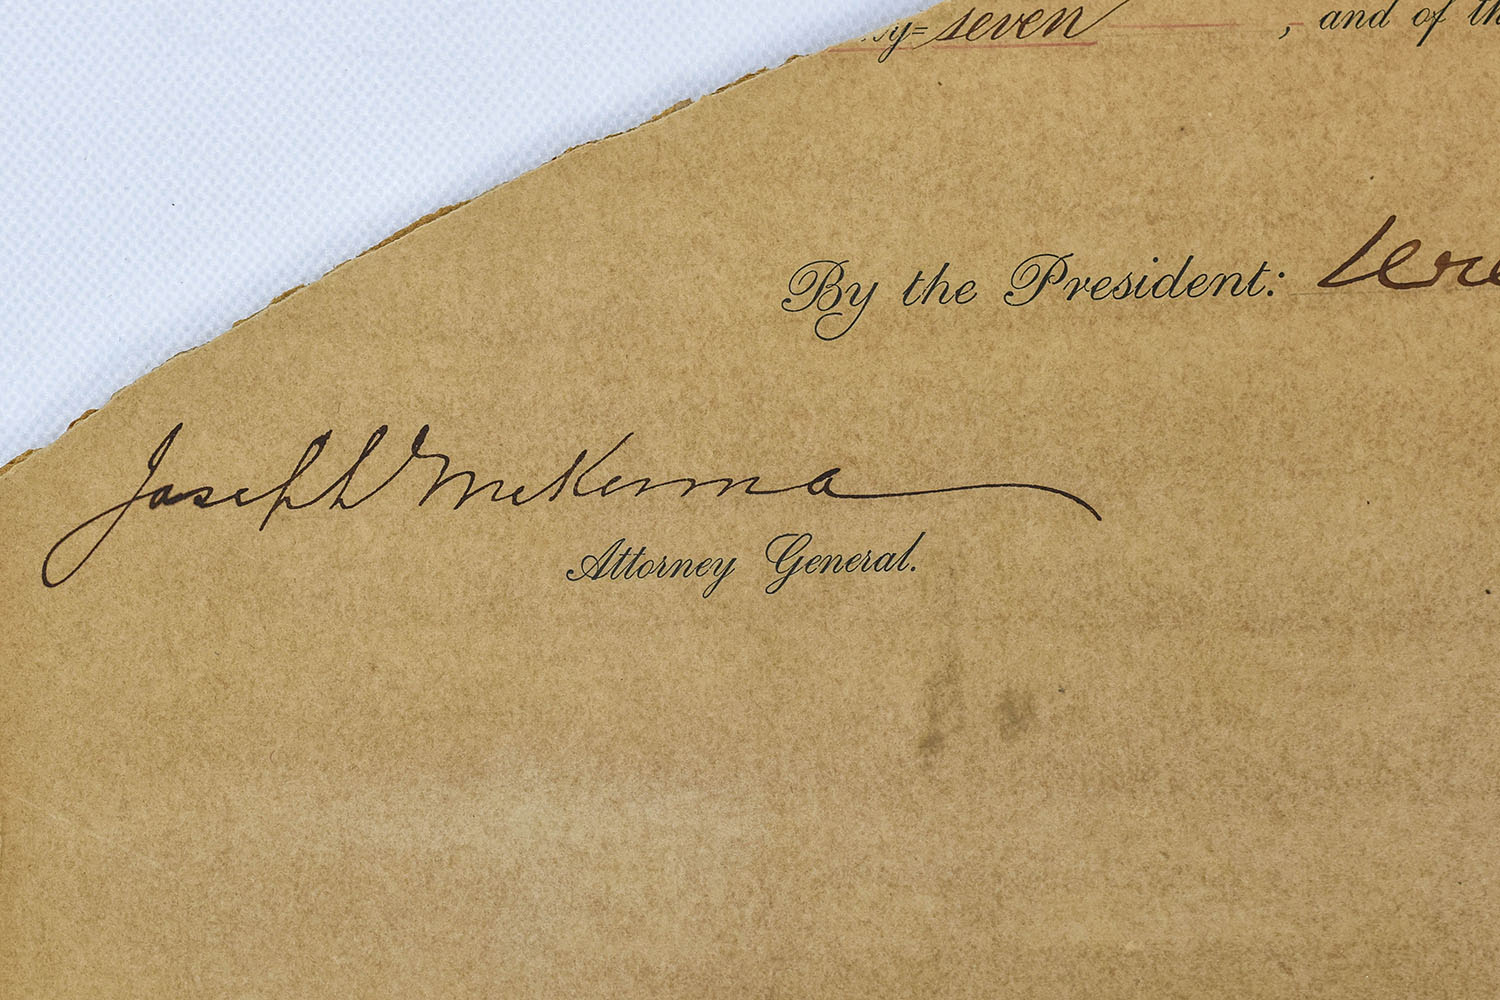 seven , and of
By the President:
Joseph McKenna
Attorney General.